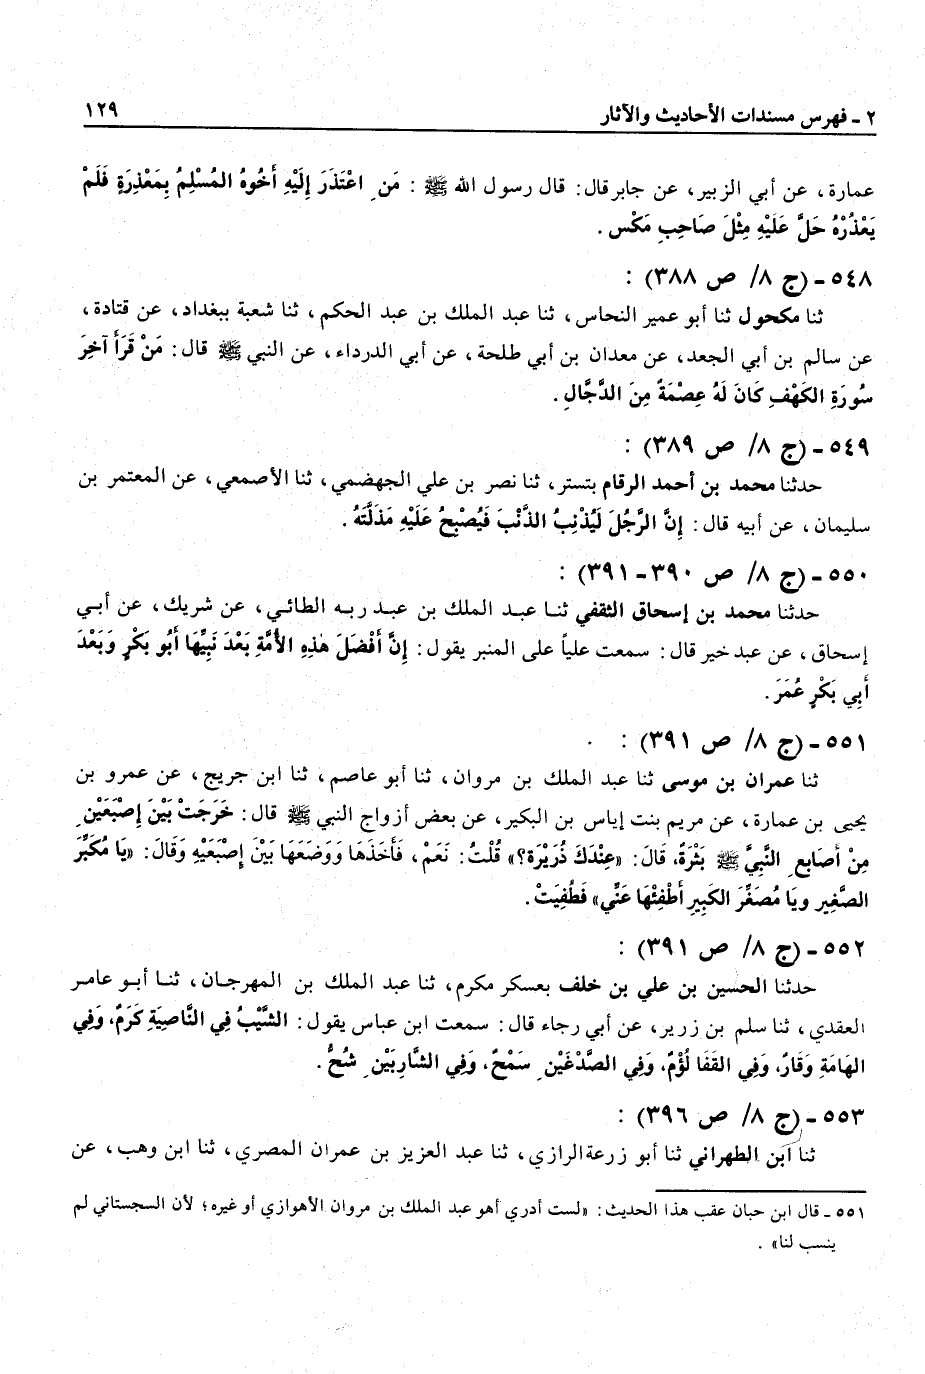 ٢ ـ فهرس مسندات الأحاديث والآثار ١٢٩
عمارة، عن أبي الزبير، عن جابر قال: قال رسول الله ﷺ : مَنِ اعْتَذَرَ إِلَيْهِ أَخُوهُ المُسْلِمُ بِمَعْذِرَةٍ فَلَمْ
يَعْذُرْهُ حَلَّ عَلَيْهِ مِثْلَ صَاحِبِ مَكْسٍ .
٥٤٨ ـ (ج ٨/ ص ٣٨٨) :
ثنا مكحول ثنا أبو عمير النحاس، ثنا عبد الملك بن عبد الحكم، ثنا شعبة ببغداد، عن قتادة،
عن سالم بن أبي الجعد، عن معدان بن أبي طلحة، عن أبي الدرداء، عن النبي ﷺ قال: مَنْ قَرَأَ آخِرَ
سُورَةِ الكَهْفِ كَانَ لَهُ عِصْمَةً مِنَ الدَّجَّالِ .
٥٤٩ ـ (ج ٨/ ص ٣٨٩) :
حدثنا محمد بن أحمد الرقام بتستر، ثنا نصر بن علي الجهضمي، ثنا الأصمعي، عن المعتمر بن
سليمان، عن أبيه قال: إِنَّ الرَّجُلَ لَيُذْنِبُ الذَّنْبَ فَيُصْبِحُ عَلَيْهِ مَذَلَّتَهُ .
٥٥٠ ـ (ج ٨/ ص ٣٩٠ ـ ٣٩١) :
حدثنا محمد بن إسحاق الثقفي ثنا عبد الملك بن عبد ربه الطائي، عن شريك، عن أبي
إسحاق، عن عبد خير قال: سمعت علياً على المنبر يقول: إِنَّ أَفْضَلَ هٰذِهِ الأُمَّةِ بَعْدَ نَبِيِّهَا أَبُو بَكْرٍ وَبَعْدَ
أَبِي بَكْرٍ عُمَرَ .
٥٥١ ـ (ج ٨/ ص ٣٩١) :
ثنا عمران بن موسى ثنا عبد الملك بن مروان، ثنا أبو عاصم، ثنا ابن جريج، عن عمرو بن
يحيى بن عمارة، عن مريم بنت إياس بن البكير، عن بعض أزواج النبي ﷺ قال: خَرَجَتْ بَيْنَ إِصْبَعَيْنِ
مِنْ أَصَابِعِ النَّبِيِّ ﷺ بَثْرَةً، قَالَ: «عِنْدَكَ ذُرَيْرَة؟» قُلْتُ: نَعَمْ، فَأَخَذَهَا وَوَضَعَهَا بَيْنَ إِصْبَعَيْهِ وَقَالَ: «يَا مُكَبِّرَ
الصَّغِيرِ ويَا مُصَغِّرَ الكَبِيرِ أَطْفِئْهَا عَنِّي» فَطُفِيَتْ .
٥٥٢ ـ (ج ٨/ ص ٣٩١) :
حدثنا الحسين بن علي بن خلف بعسكر مكرم، ثنا عبد الملك بن المهرجان، ثنا أبو عامر
العقدي، ثنا سلم بن زرير، عن أبي رجاء قال: سمعت ابن عباس يقول: الشَّيْبُ فِي النَّاصِيَةِ كَرَمٌ، وَفِي
الهَامَةِ وَقَارٌ، وَفِي القَفَا لُؤْمٌ، وَفِي الصُّدْغَيْنِ سَمْحٌ، وَفِي الشَّارِبَيْنِ شُحٌّ .
٥٥٣ ـ (ج ٨/ ص ٣٩٦) :
ثنا ابن الطهراني ثنا أبو زرعة الرازي، ثنا عبد العزيز بن عمران المصري، ثنا ابن وهب، عن
٥٥١ ـ قال ابن حبان عقب هذا الحديث: «لست أدري أهو عبد الملك بن مروان الأهوازي أو غيره؛ لأن السجستاني لم
ينسب لنا» .